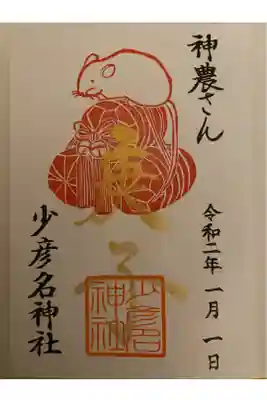 神農さん
令和二年一月一日
庚子
少彦名
神社
少彦名神社